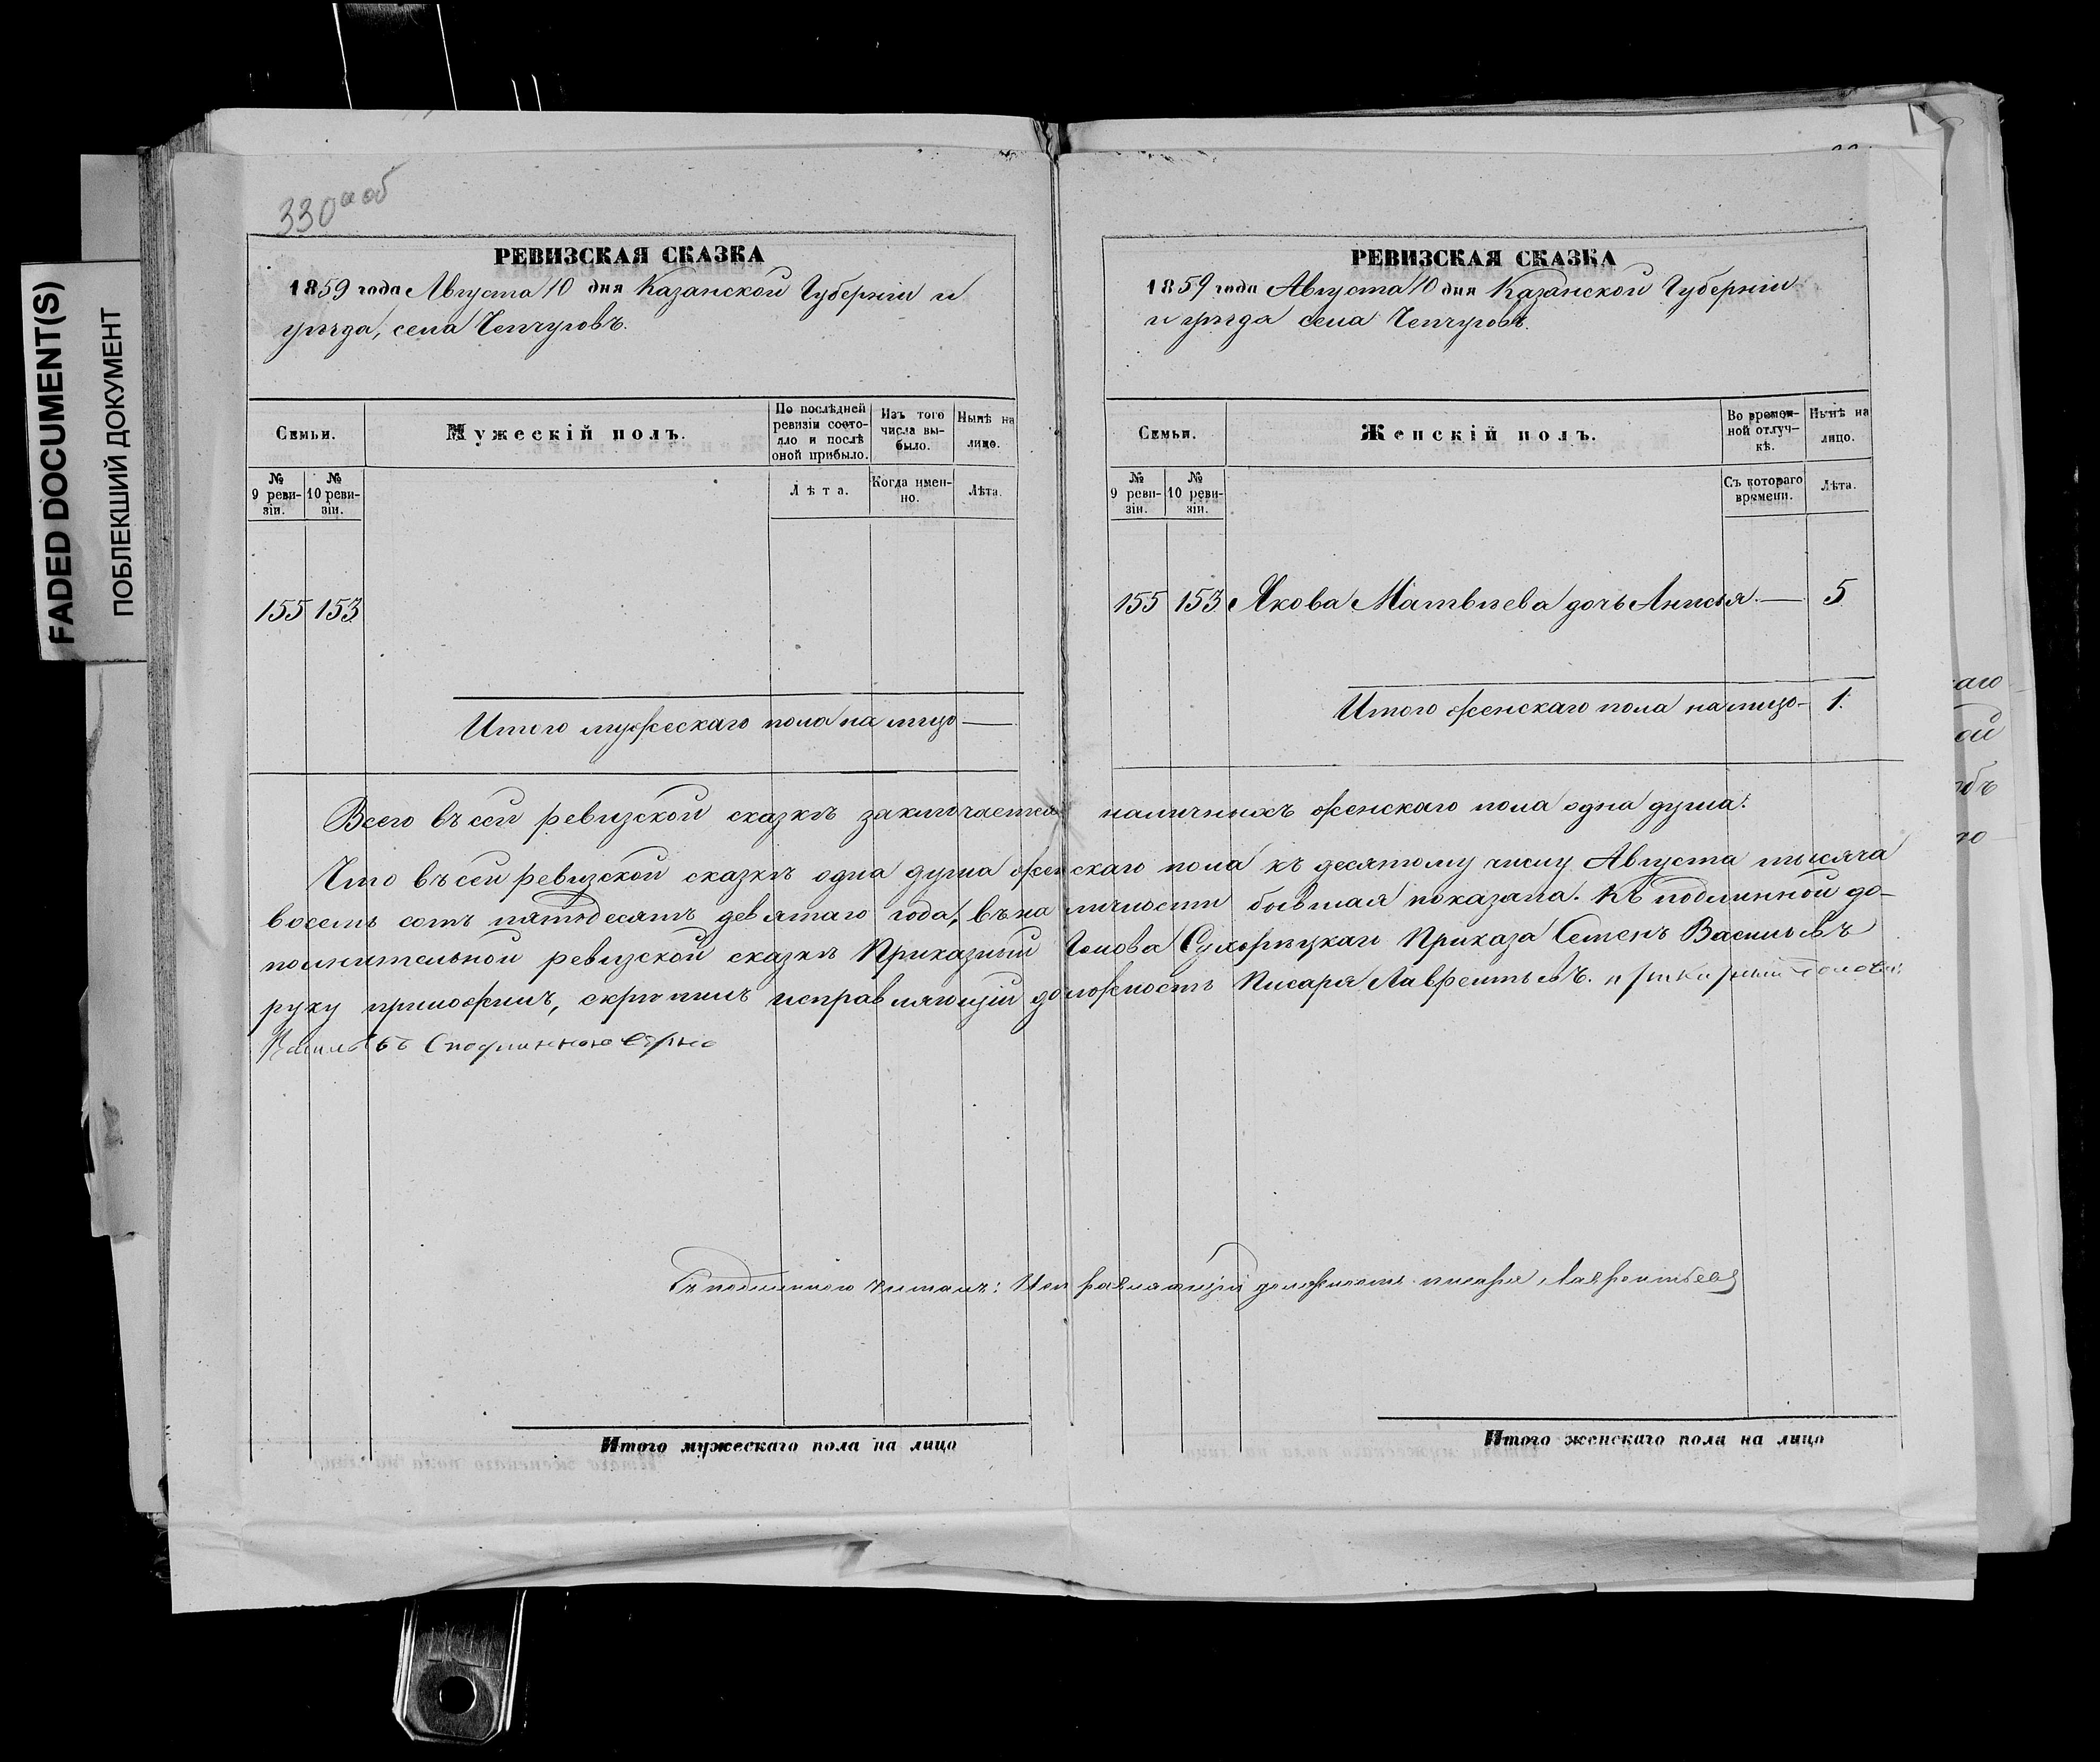 FADED DOCUMENT(S)
ПОБЛЕКШИЙ ДОКУМЕНТ
330а об
РЕВИЗСКАЯ СКАЗКА
1859 года Августа 10 дня Казанской Губерніи и
уѣзда, села Чепчуговъ.
Семьи.
Мужескій полъ.
По послѣдней ревизіи состояло и послѣ оной прибыло.
Изъ того числа выбыло.
Нынѣ на лицо.
№ 9 ревизіи.
№ 10 ревизіи.
Лѣта.
Когда именно.
Лѣта.
155 153
Итого мужескаго пола на лицо —
РЕВИЗСКАЯ СКАЗКА
1859 года Августа 10 дня Казанской Губерніи
и уѣзда села Чепчуговъ.
Семьи.
Женскій полъ.
Во временной отлучкѣ.
Нынѣ на лицо.
№ 9 ревизіи.
№ 10 ревизіи.
Съ котораго времени.
Лѣта.
155 153 Якова Матвѣева дочь Анисья — 5
Итого женскаго пола на лицо — 1.
Всего въ сей ревизской сказкѣ заключается наличныхъ женскаго пола одна душа.
Что въ сей ревизской сказкѣ одна душа женскаго пола къ десятому числу Августа тысяча
восемь сотъ пятьдесятъ девятаго года, въ наличности бывшая показана. Къ подлинной до-
полнительной ревизской сказкѣ Приказный Голова Сухорѣцкаго Приказа Семенъ Васильевъ
руку приложилъ, скрѣпилъ исправляющій должность Писаря Лаврентьевъ. приказный Голова:
Васильевъ С подлинною вѣрно
Съ подлинного читалъ: Исправляющій должность писаря Лаврентьевъ
Итого мужескаго пола на лицо
Итого женскаго пола на лицо